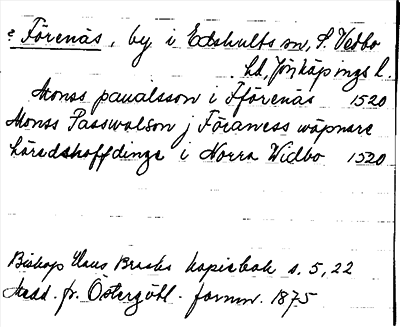 Förenäs, by i Edshults sn, S. Vedbo
hd, Jönköpings l.
Monss paualsson i Fförenäs 1520
Monss Passwalson j Föraness wäpnare
häredshöffdinge i Norra Widbo 1520
Biskop Hans Brasks kopiebok s. 5, 22
Medd. fr. Östergötl. fornm. 1875